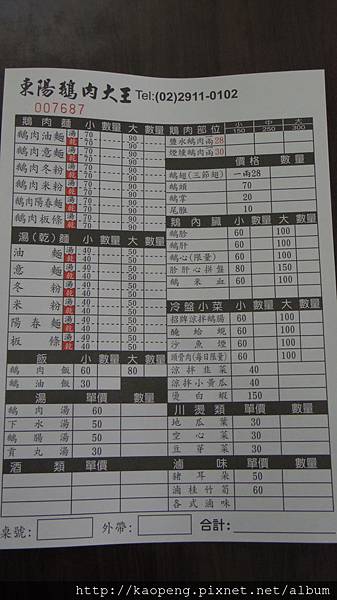 東陽鵝肉大王 Tel:(02)2911-0102
007687
鵝肉麵 小 數量 大 數量
鵝肉油麵 湯 70 90
乾 70 90
鵝肉意麵 湯 70 90
乾 70 90
鵝肉冬粉 湯 70 90
乾 70 90
鵝肉米粉 湯 70 90
乾 70 90
鵝肉陽春麵 湯 70 90
乾 70 90
鵝肉板條 湯 70 90
乾 70 90
湯(乾)麵 小 數量 大 數量
油麵 湯 40 50
乾 40 50
意麵 湯 40 50
乾 40 50
冬粉 湯 40 50
乾 40 50
米粉 湯 40 50
乾 40 50
陽春麵 湯 40 50
乾 40 50
板條 湯 40 50
乾 40 50
飯 小 數量 大 數量
鵝肉飯 60 80
鵝油飯 30
湯 單價 數量
鵝肉湯 60
下水湯 50
鵝腸湯 50
貢丸湯 30
酒類 單價 數量
鵝肉部位 小150 中250 大300
鹽水鵝肉兩28
煙燻鵝肉兩30
價格 數量
鵝翅(三節翅) 一兩28
鵝頭 70
鵝掌 20
尾椎 10
鵝內臟 小 數量 大 數量
鵝胗 60 100
鵝肝 60 100
鵝心(限量) 60 100
胗肝心拼盤 80 150
鵝米血 60
冷盤小菜 小 數量 大 數量
招牌涼拌鵝腸 60 100
醃蛤蜆 60 100
沙魚煙 60 100
頭骨肉(每日限量) 60 100
涼拌韭菜 40
涼拌小黃瓜 40
燙白蝦 150
川燙類 單價 數量
地瓜葉 30
空心菜 30
豆芽菜 30
滷味 單價 數量
豬耳朵 50
滷桂竹筍 60
各式滷味
桌號: 外帶: 合計:
http://kaopeng.pixnet.net/album